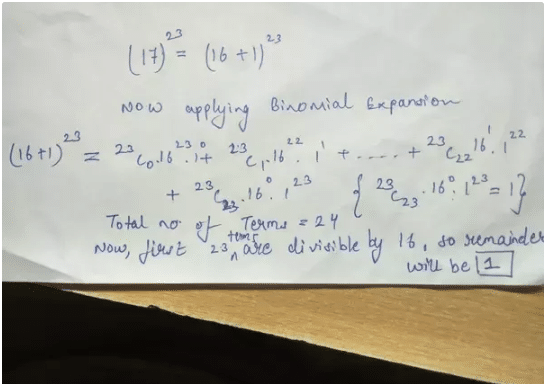 (17)²³ = (16+1)²³
Now applying Binomial Expansion
(16+1)²³ = ²³C₀.16²³.1⁰ + ²³C₁.16²².1¹ + ..... + ²³C₂₂ 16¹.1²²
+ ²³C₂₃.16⁰.1²³ { ²³C₂₃.16⁰.1²³ = 1 }
Total no of Terms = 24
Now, first 23 terms are divisible by 16, so remainder
will be 1